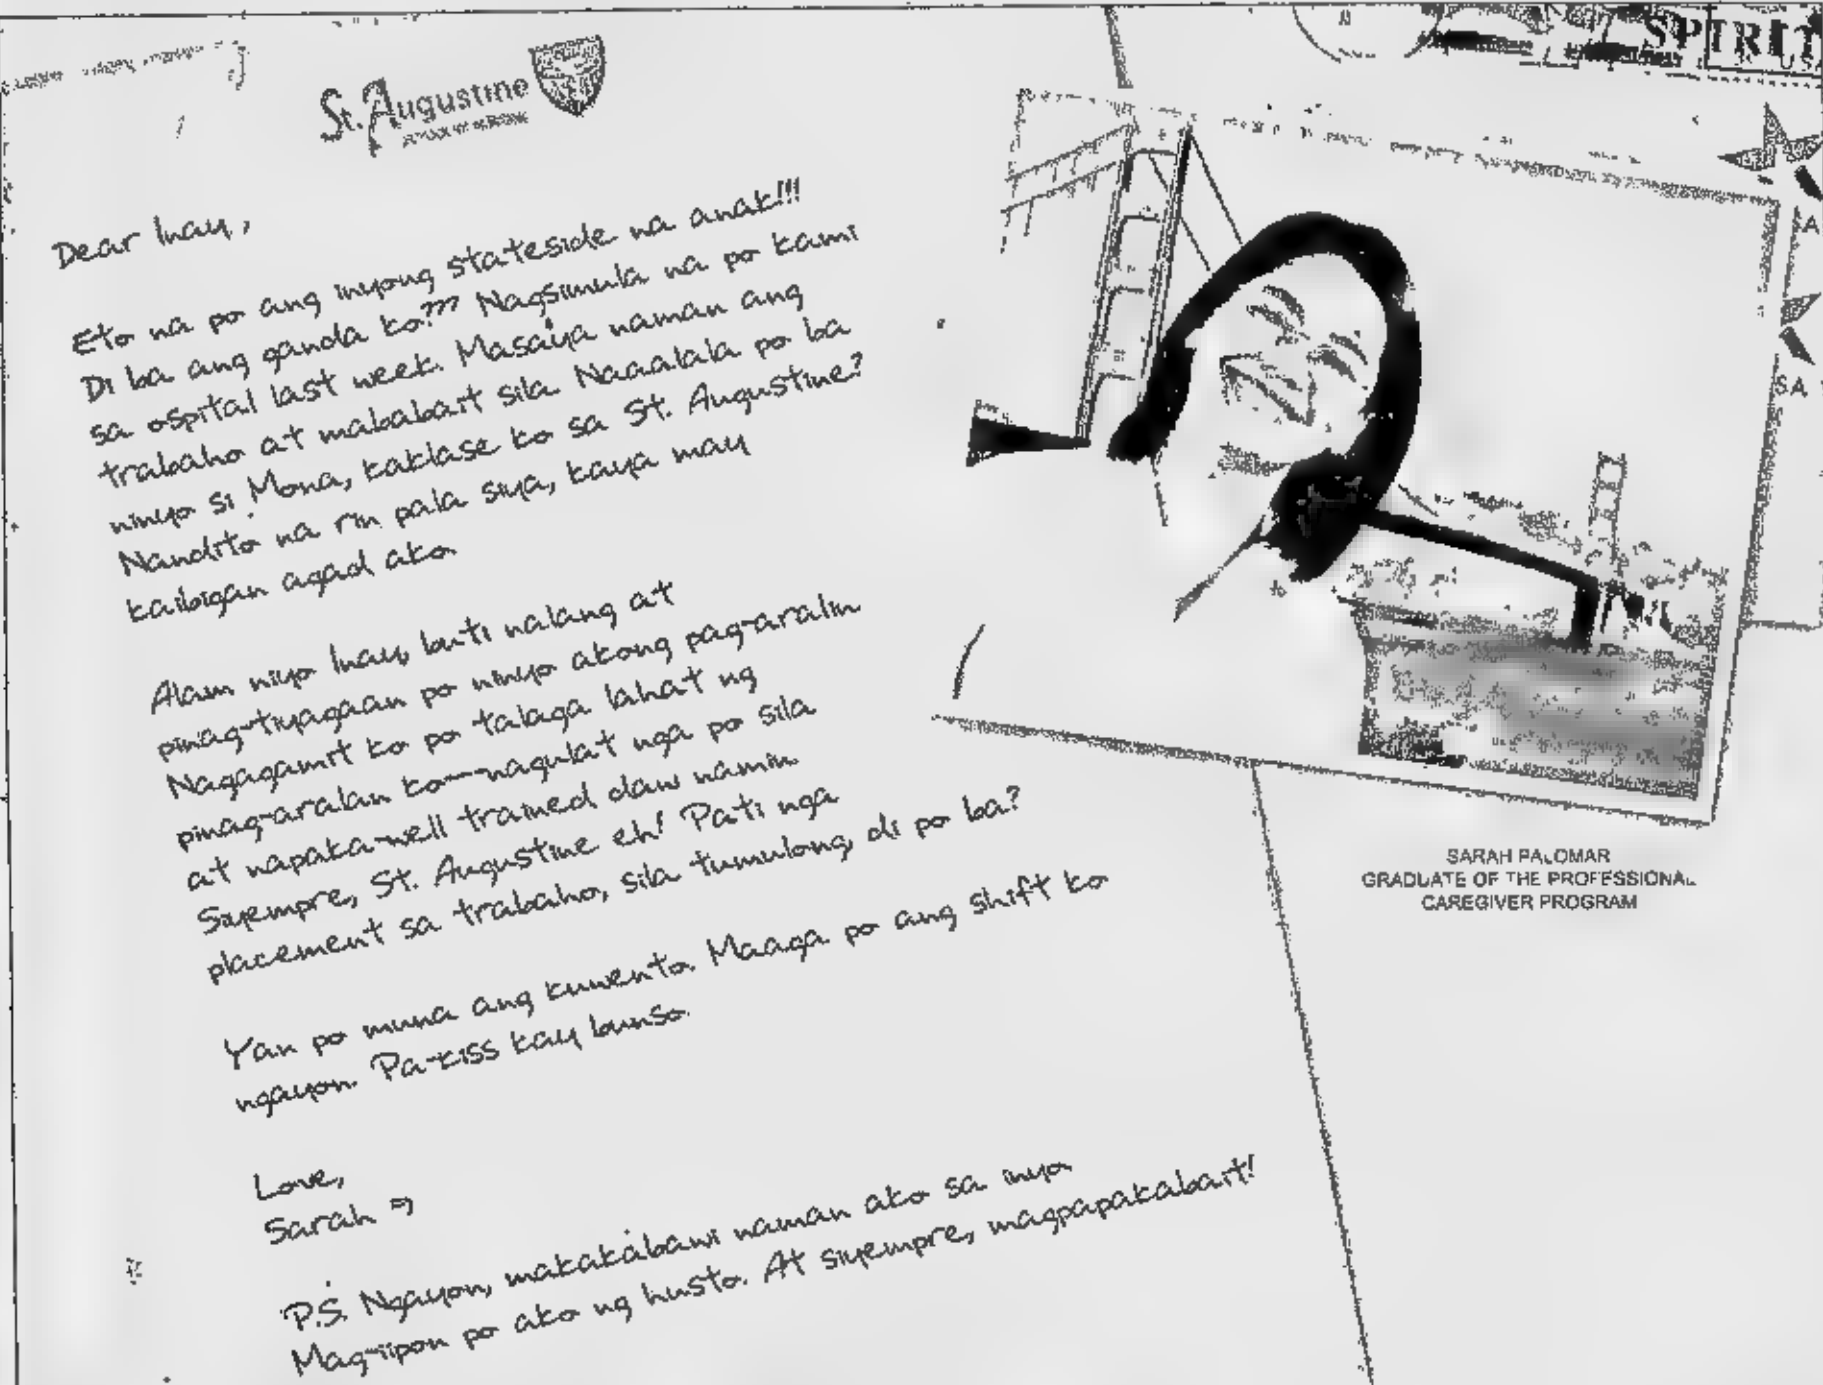 St. Augustine
SCHOOL OF NURSING
Dear Inay,
Eto na po ang inyong stateside na anak!!!
Di ba ang ganda ko??? Nagsimula na po kami
sa ospital last week. Masaya naman ang
trabaho at mababait sila. Naaalala po ba
ninyo si Mona, kaklase ko sa St. Augustine?
Nandito na rin pala siya, kaya may
kaibigan agad ako.
Alam niyo Inay, buti nalang at
pinag-tiyagaan po ninyo akong pag-aralin.
Nagagamit ko po talaga lahat ng
pinag-aralan ko---nagulat nga po sila
at napaka-well trained daw namin.
Siyempre, St. Augustine eh! Pati nga
placement sa trabaho, sila tumulong, di po ba?
Yan po muna ang kuwento. Maaga po ang shift ko
ngayon. Pa-kiss kay bunso.
Love,
Sarah =)
P.S. Ngayon, makakabawi naman ako sa inyo.
Mag-iipon po ako ng husto. At siyempre, magpapakabait!
SPIRIT
USA
SA
SARAH PALOMAR
GRADUATE OF THE PROFESSIONAL
CAREGIVER PROGRAM